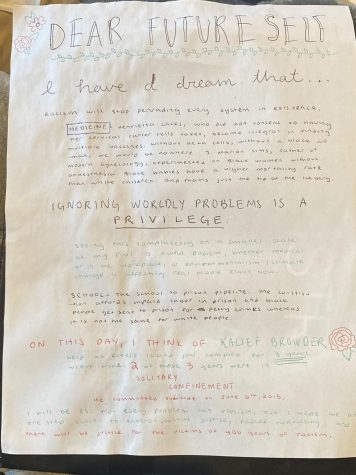 DEAR FUTURE SELF
I have a dream that...
Racism will stop pervading every system in existence.
MEDICINE: Henrietta Lacks, who did not consent to having
her cervical cancer cells taken, became integral in finding
multiple vaccines. Without HeLa cells, without a black wo-
man, we would be nowhere. J. Marion Sims, father of
modern gynecology, experimented on Black women without
anesthesia. Black babies have a higher mortality rate
than white children. And that's just the tip of the iceberg.
IGNORING WORLDLY PROBLEMS IS A
PRIVILEGE.
seeing this complacency on a smaller scale
at my
racism, whether medical
or in the workplace, or environmental
climate
change is affecting real people right now.
SCHOOL → The school to prison pipeline. The constitu-
tion affords unpaid labor in prison and black
people get sent to prison for petty crimes whereas
it is not the same for white people.
ON THIS DAY, I THINK OF KALIEF BROWDER
held at Rikers Island jail complex for 3 years
2 of those 3 years were in
SOLITARY
CONFINEMENT
He committed suicide on June 6th, 2015.
I will be 35. Not every problem has vanished but I hope we are
one step closer to environmental justice, racial
and
there will be justice for the victims of 400 years of racism.